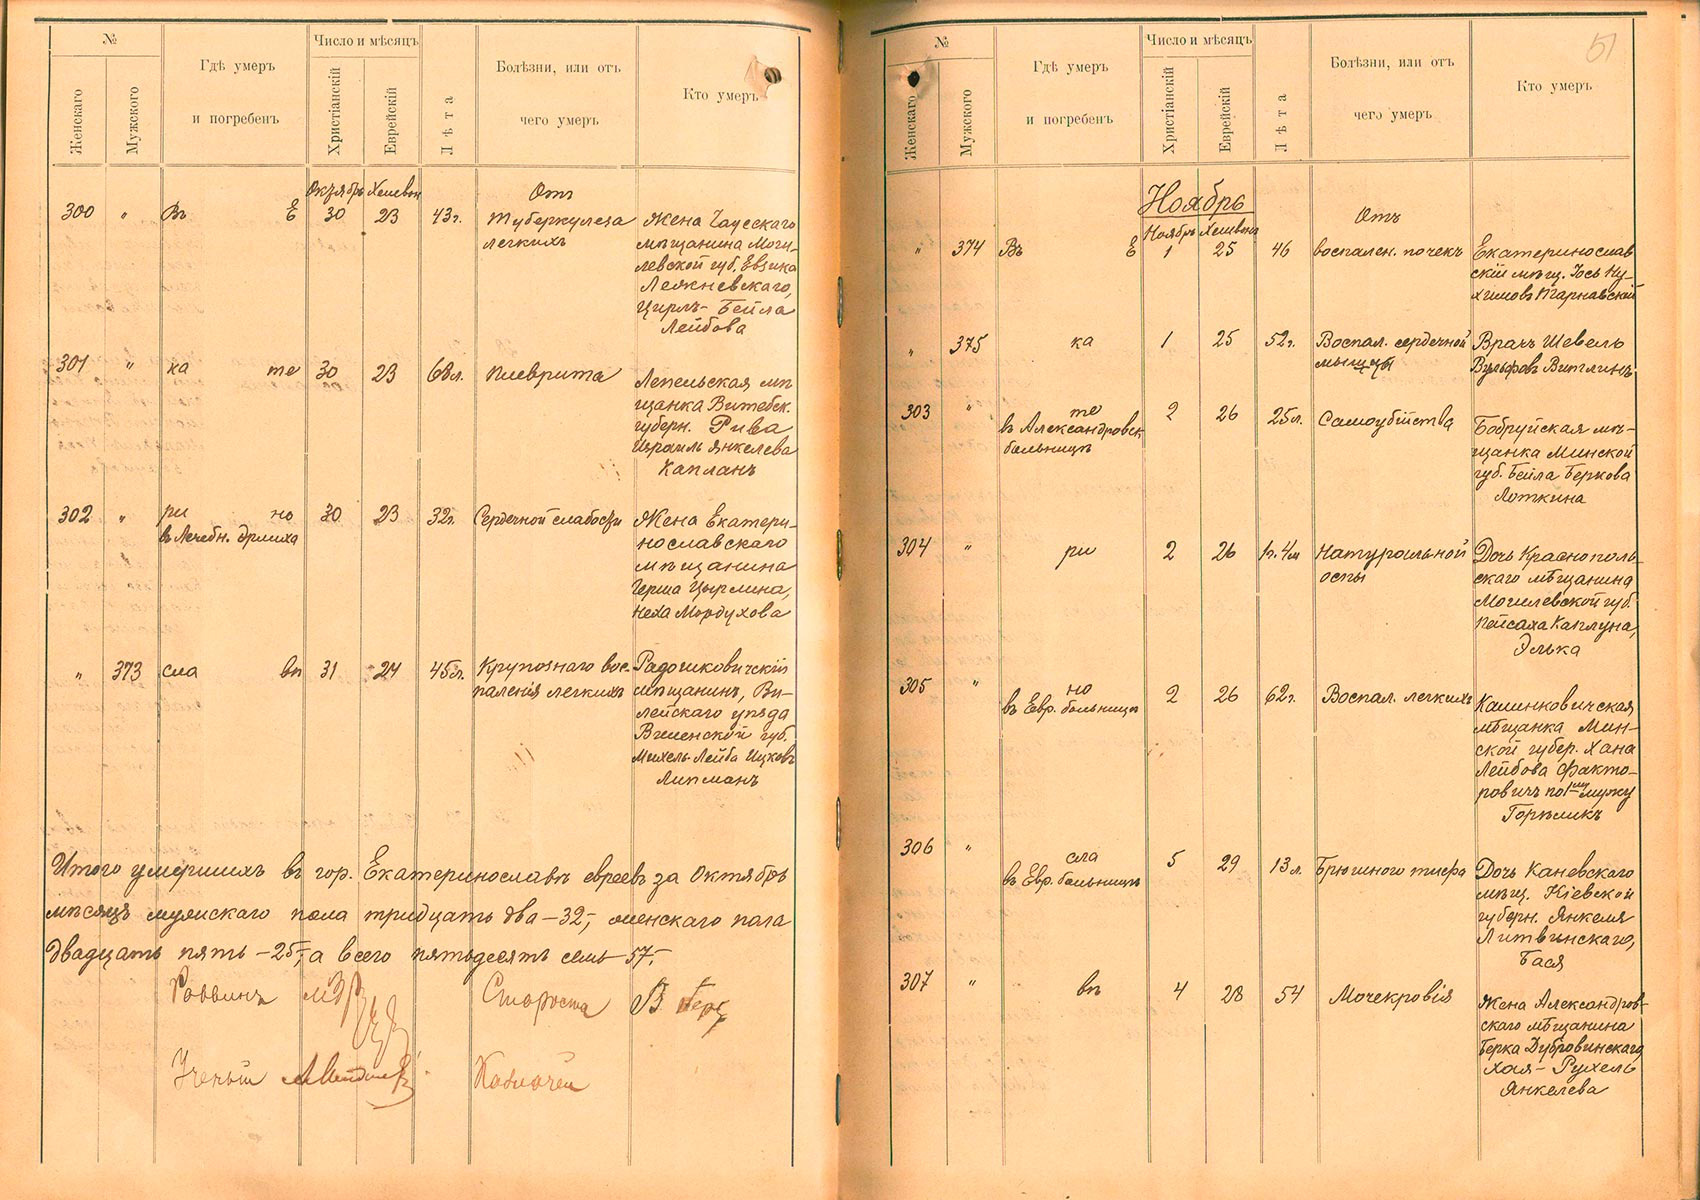 №
Гдѣ умеръ
и погребенъ
Число и мѣсяцъ
Болѣзни, или отъ
чего умеръ
Кто умеръ
Женскаго
Мужского
Христіанскій
Еврейскій
Лѣта
Октябрь Хешвон
Отъ
300 " Въ Е 30 23 43 г. Туберкулеза
легкихъ
Жена Чаусскаго
мѣщанина Моги-
левской губ. Евзика
Лежневскаго,
Цирлъ-Бейла
Лейбова
301 " ка те 30 23 68 л. Плеврита
Лепельская мѣ
щанка Витебск.
губерн. Рива
Израиль Янкелева
Капланъ
302 " ри но 30 23 32 г. Сердечной слабости
въ Лечебн.
Жена Екатери-
нославскаго
мѣщанина
Герша Цырлина,
Неха Мордухова
" 373 сла вѣ 31 24 45 л. Крупознаго вос-
паленія легкихъ
Радошковичскій
мѣщанинъ, Ви-
лейскаго уѣзда
Виленской губ.
Михель-Лейба Ицковъ
Липманъ
Итого умершихъ въ гор. Екатеринославѣ евреевъ за Октябрь
мѣсяцъ мужскаго пола тридцать два -32,- женскаго пола
двадцать пять -25,- а всего пятьдесятъ семь -57.-
Раввинъ
Староста
Ученый
Казначей
51
№
Гдѣ умеръ
и погребенъ
Число и мѣсяцъ
Болѣзни, или отъ
чего умеръ
Кто умеръ
Женскаго
Мужского
Христіанскій
Еврейскій
Лѣта
Ноябрь
Ноябрь Хешвон
Отъ
" 374 Въ Е 1 25 46 воспален. почекъ
Екатеринослав
скій мѣщ. Іось Ну-
химовъ Тарнавскій
" 375 ка 1 25 52 г. Воспал. сердечной
мышцы
Врачъ Шевель
Вульфовъ Витлинъ
303 " те 2 26 25 л. Самоубійства
въ Александровск
больницѣ
Бобруйская мѣ-
щанка Минской
губ. Бейла Беркова
Лоткина
304 " ри 2 26 1 г. 4 м Натуральной
оспы
Дочь Краснополь-
скаго мѣщанина
Могилевской губ.
Пейсаха Каплуна,
Элька
305 " но 2 26 62 г. Воспал. легкихъ
въ Евр. больницѣ
Калинковичская
мѣщанка Мин-
ской губер. Хана
Лейбова Факто-
ровичъ по 1му мужу
Горѣликъ
306 " сла 5 29 13 л. Брюшного тифа
въ Евр. больницѣ
Дочь Каневскаго
мѣщ. Кіевской
губерн. Янкеля
Литвинскаго,
Бася
307 " вѣ 4 28 54 Мочекровія
Жена Александров-
скаго мѣщанина
Берка Дубровинскаго
Хая-Рухель
Янкелева